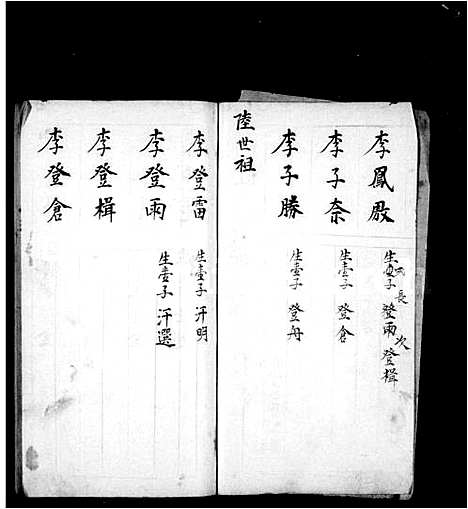 李鳳殿 生弍子 長登雨 次登楫
李子奈 生壹子 登倉
李子勝 生壹子 登舟
陸世祖
李登雷 生壹子 汗明
李登雨 生壹子 汗選
李登楫
李登倉